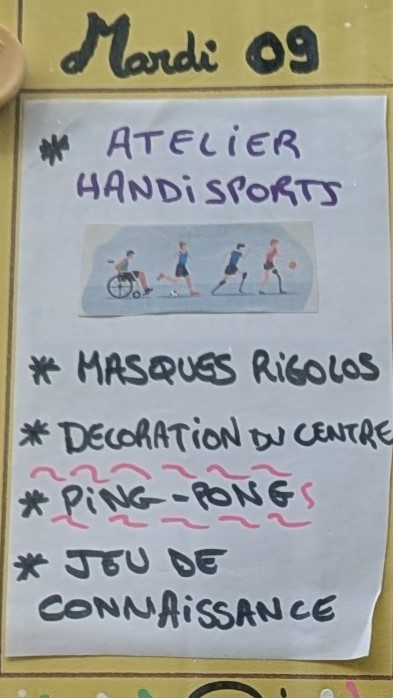 Mardi 09
* ATELiER
HANDiSPORTS
* MASQUES RiGOLOS
* DECORATiON DU CENTRE
* PiNG-PONGS
* JEU DE
CONNAiSSANCE